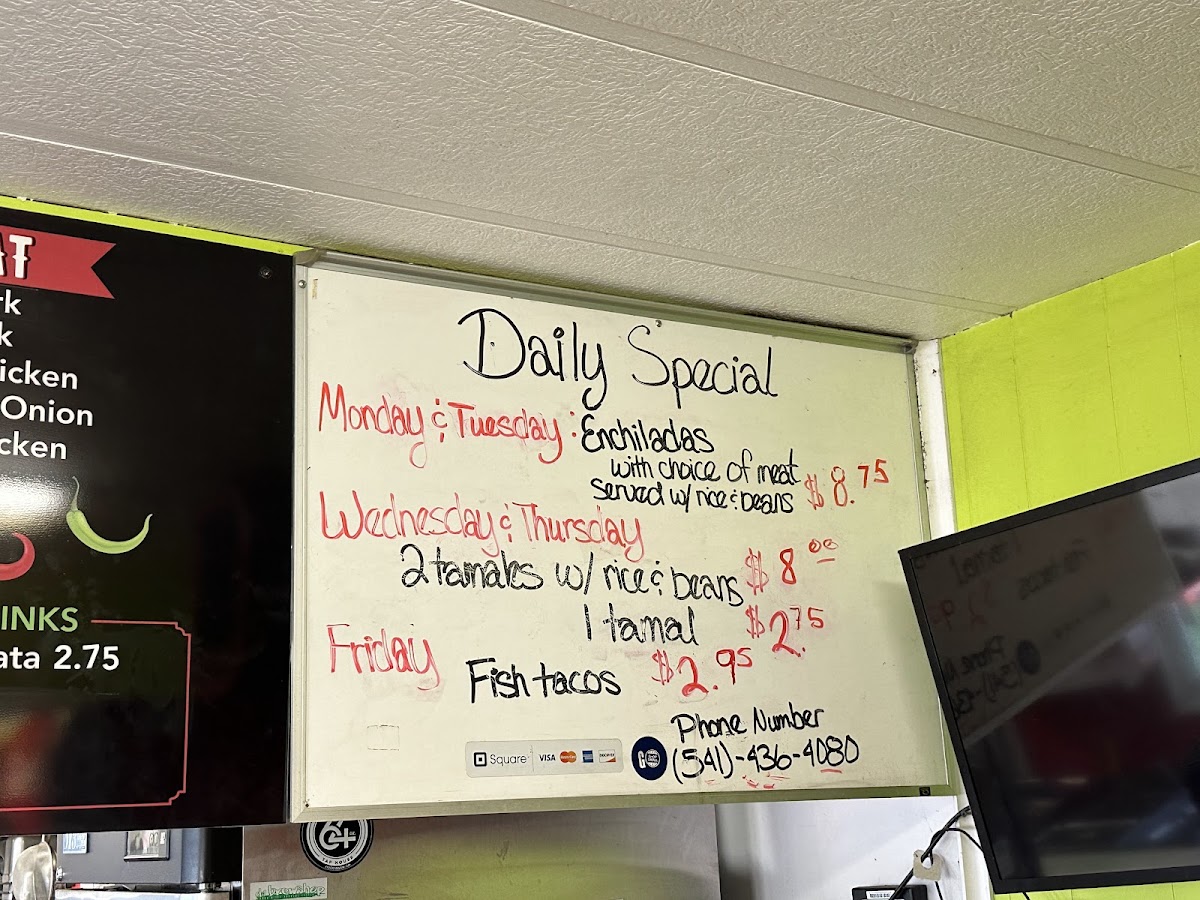 icken
Onion
cken
INKS
ata 2.75
Daily Special
Monday & Tuesday: Enchiladas
with choice of meat
served w/ rice & beans $8.75
Wednesday & Thursday
2 tamales w/ rice & beans $8.00
1 tamal $2.75
Friday
Fish tacos $2.95
Phone Number
(541)-436-4080
Square VISA MasterCard DISCOVER
TAP HOUSE